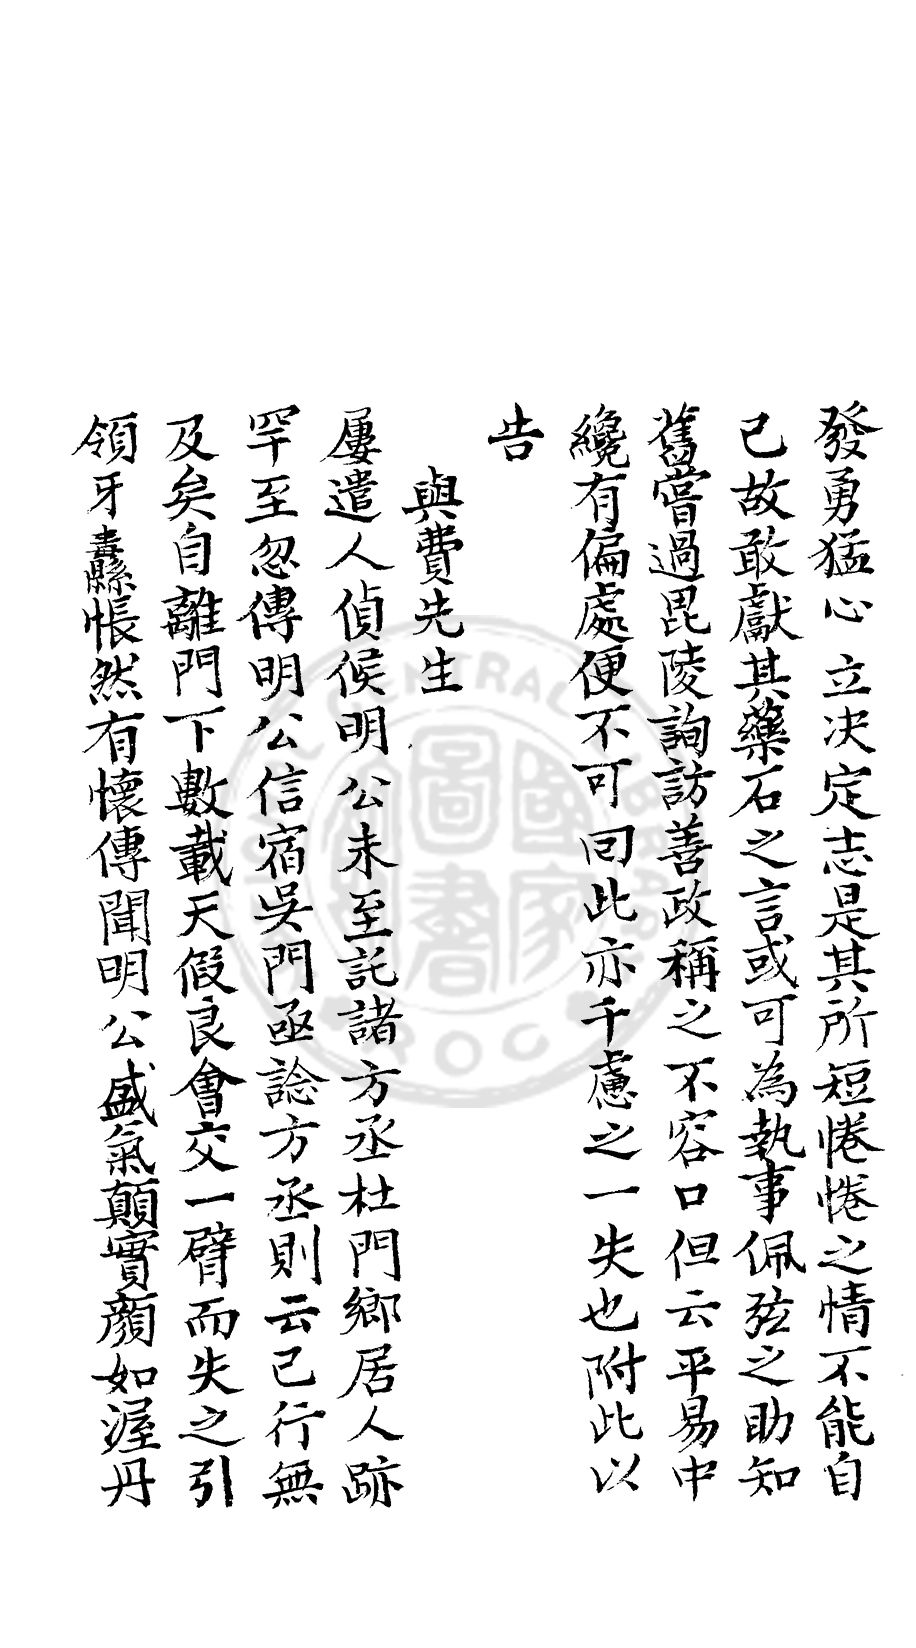 發勇猛心立決定志是其所短惓惓之情不能自
已故敢獻其藥石之言或可為執事佩弦之助知
舊嘗過毘陵詢訪善政稱之不容口但云平易中
纔有偏處便不可囘此亦千慮之一失也附此以
告
與費先生
屢遣人偵候明公未至託諸方丞杜門鄉居人跡
罕至忽傳明公信宿吳門亟諗方丞則云已行無
及矣自離門下數載天假良會交一臂而失之引
領牙纛悵然有懷傳聞明公盛氣顛實顏如渥丹
國家圖書館
NATIONAL CENTRAL LIBRARY
ROC